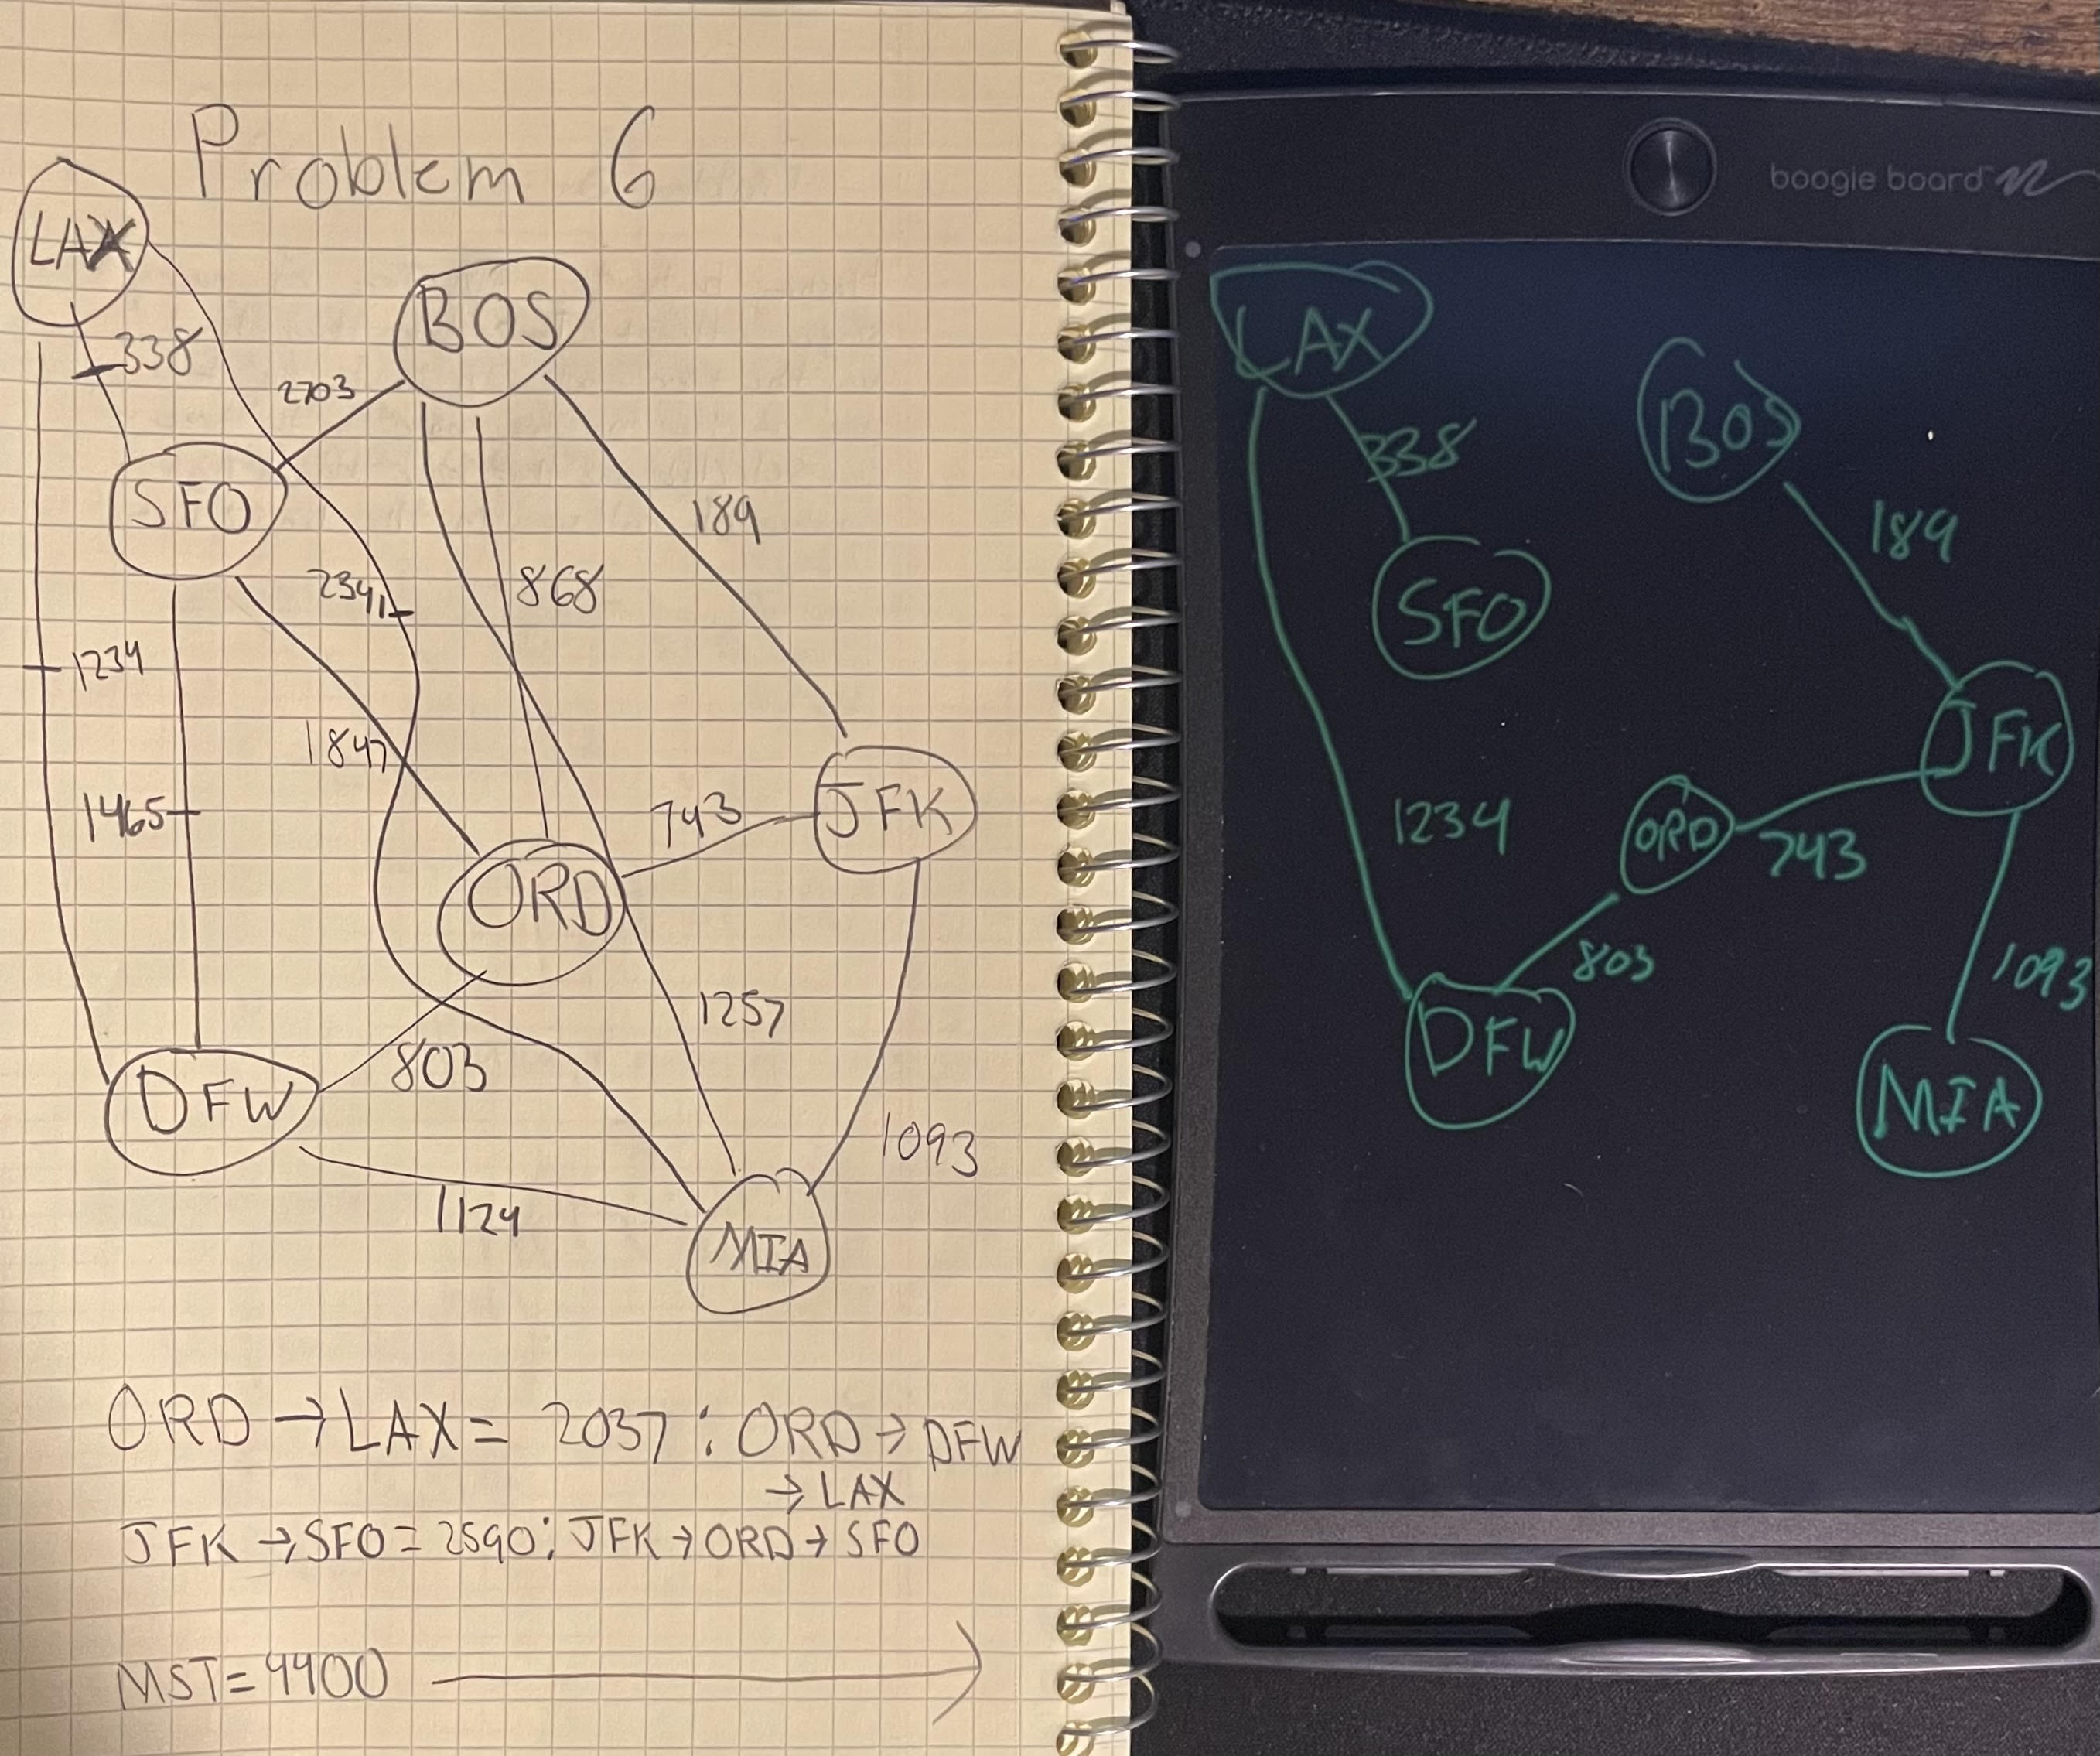 Problem 6
LAX
BOS
338
2703
SFO
189
2341
868
1234
1847
1465
743
JFK
ORD
1257
803
DFW
1093
1124
MIA
ORD → LAX = 2037 : ORD → DFW
→ LAX
JFK → SFO = 2590 : JFK → ORD → SFO
MST = 4400
boogie board
LAX
BOS
338
189
SFO
JFK
1234
ORD
743
803
1093
DFW
MIA